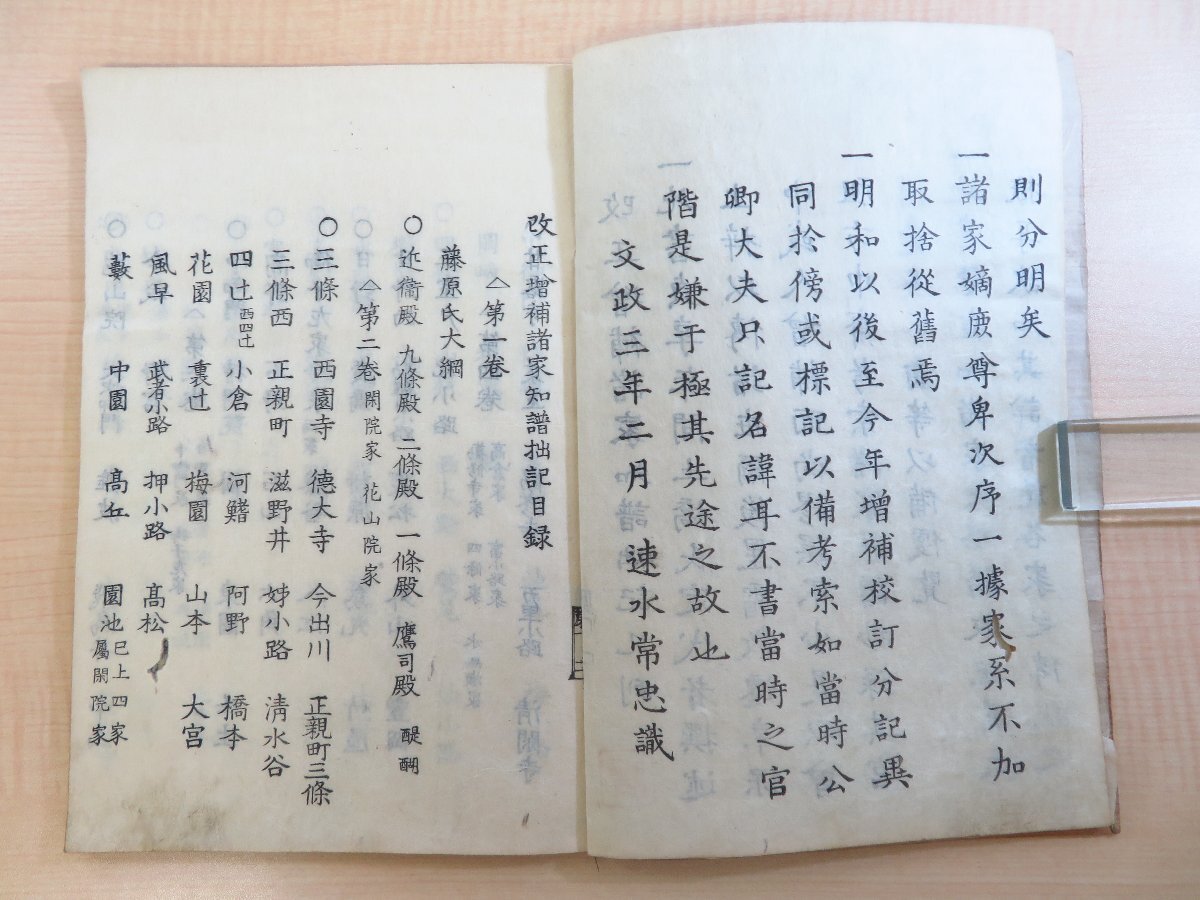 則分明矣
一諸家嫡庶尊卑次序一據家系不加
取捨從舊焉
一明和以後至今年增補校訂分記異
同於傍或標記以備考索如當時公
卿大夫只記名諱耳不書當時之官
階是嫌于極其先途之故也
文政三年二月 速水常忠識
改正增補諸家知譜拙記目録
△第一卷
藤原氏大綱
○近衞殿 九條殿 二條殿 一條殿 鷹司殿 醍醐
△第二卷 閑院家 花山院家
○三條 西園寺 德大寺 今出川 正親町三條
三條西 正親町 滋野井 姉小路 清水谷
○四辻 西四辻 小倉 河鰭 阿野 橋本
花園 裏辻 梅園 山本 大宮
風早 武者小路 押小路 高松
○藪 中園 高丘 園池 已上四家屬閑院家